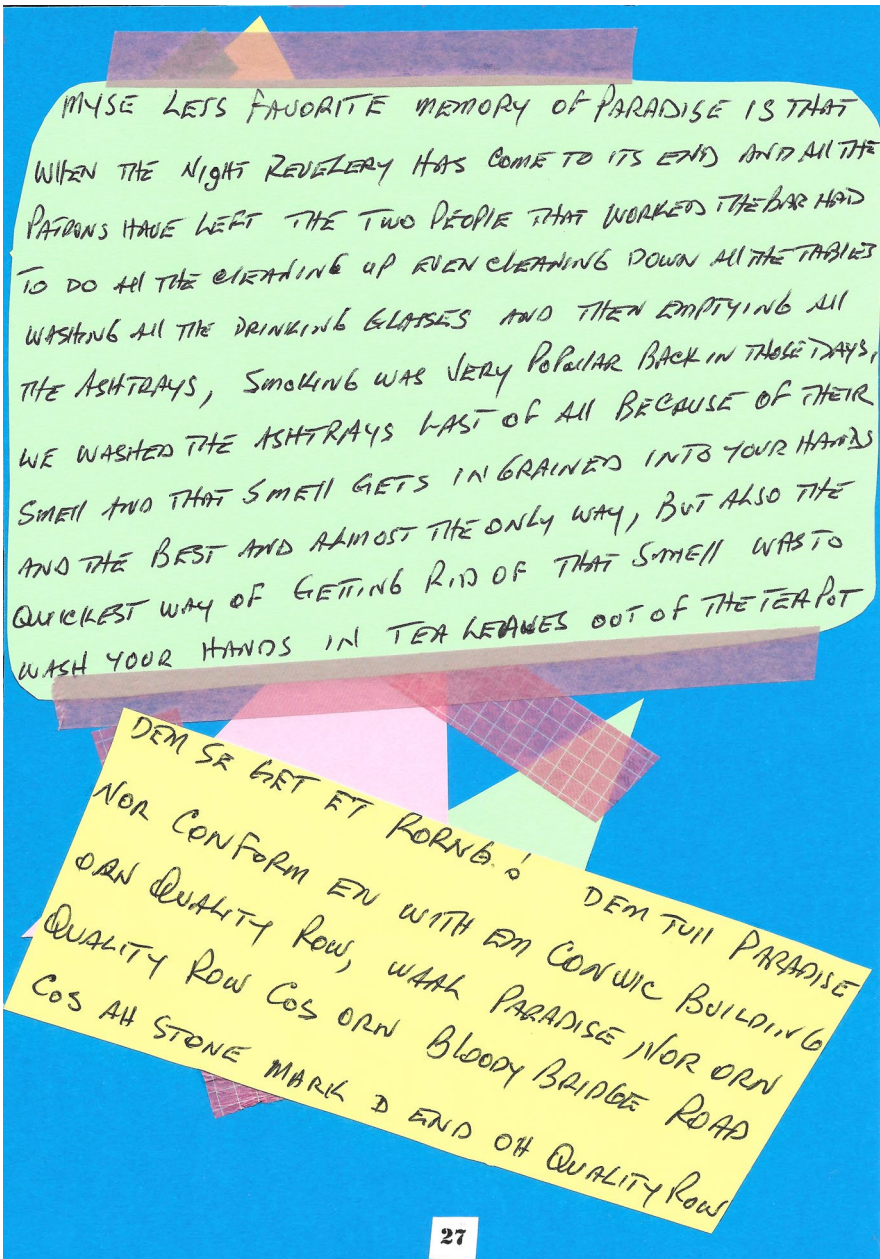 MYSE LESS FAVORITE MEMORY OF PARADISE IS THAT
WHEN THE NIgHT REVELERY HAS COME TO ITS END AND All THE
PATRONS HAVE LEFT THE TWO PEOPlE THAT WORKED THE BAR HAD
TO DO All THE CLEANING UP EVEN CLEANING DOWN All THE TABLES
WASHING All THE DRINKING GLASSES AND THEN EMPTYING All
THE ASHTRAYS, SMOKING WAS VERY POPULAR BACK IN THOSE DAYS,
WE WASHED THE ASHTRAYS LAST OF All BECAUSE OF THEIR
SMEll AND THAT SMEll GETS INGRAINED INTO YOUR HANDS
AND THE BEST AND ALMOST THE ONLY WAY, BUT ALSO THE
QUICKEST WAY OF GETTING RID OF THAT SMEll WAS TO
WASH YOUR HANDS IN TEA LEAVES OUT OF THE TEAPOT
DEM SE GET ET RORNG.! DEM TUll PARADISE
NOR CONFORM EN WITH EM CONWIC BUILDING
ORN QUALITY ROW, WAAL PARADISE NOR ORN
QUALITY ROW COS ORN BLOODY BRIDGE ROAD
COS AH STONE MARK D END OH QUALITY ROW
27